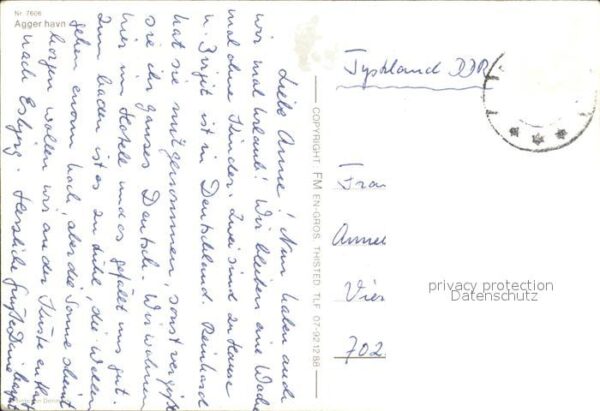 Nr. 7606
Agger havn
Liebe Anne! Nun haben auch
wir mal Urlaub! Wir bleiben eine Woche
mal ohne Kinder. Zwei sind zu Hause
u. Birgit ist in Deutschland. Reinhard
hat sie mitgenommen, sonst vergißt
sie ihr ganzes Deutsch. Wir wohnen
hier im Hotel und es gefällt uns gut.
Zum baden ist es zu kühl, die Wellen
gehen enorm hoch, aber die Sonne scheint
morgen wollen wir an der Küste entlang
nach Esbjerg. Herzliche Grüße Deine
COPYRIGHT FM EN-GROS, THISTED TLF 07-92 12 88
Tyskland DDR
Frau
Annel
Vies
702
privacy protection
Datenschutz